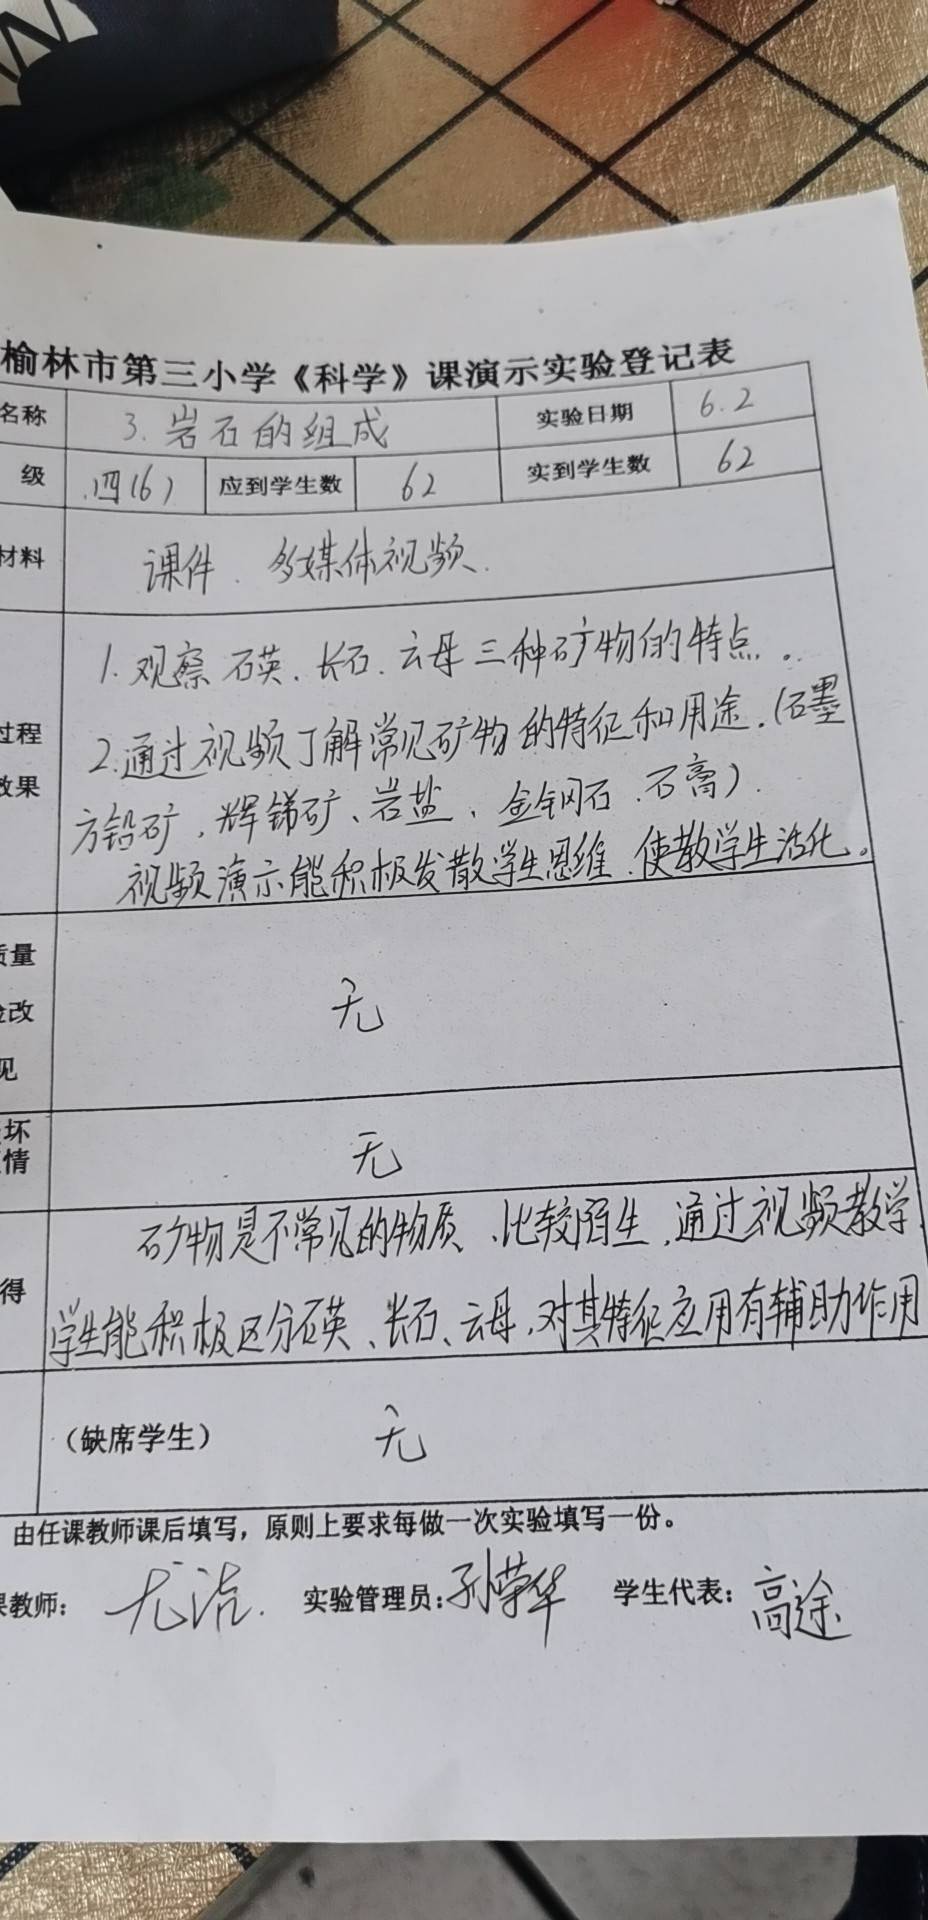 榆林市第三小学《科学》课演示实验登记表
名称 3.岩石的组成 实验日期 6.2
级 四(6) 应到学生数 62 实到学生数 62
材料 课件、多媒体视频.
1.观察石英、长石、云母三种矿物的特点。
过程 2.通过视频了解常见矿物的特征和用途.(石墨
效果 方铅矿、辉锑矿、岩盐、金钢石、石膏).
视频演示能积极发散学生思维、使教学生活化。
质量
改 无
见
坏 无
情
矿物是不常见的物质、比较陌生,通过视频教学,
得 学生能积极区分石英、长石、云母,对其特征应用有辅助作用
(缺席学生) 无
由任课教师课后填写，原则上要求每做一次实验填写一份。
课教师: 尤洁. 实验管理员:孙荣华 学生代表:高途